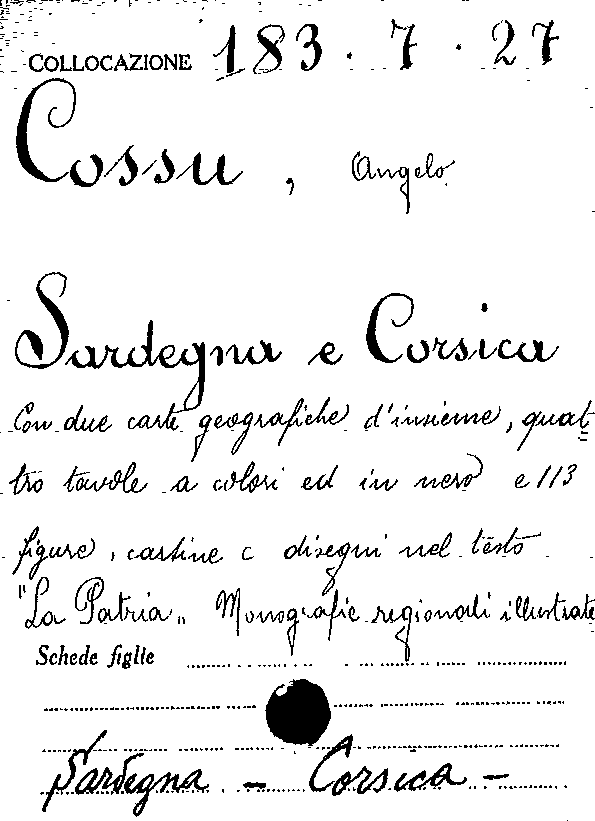 COLLOCAZIONE 183 · 7 · 27
Cossu, Angelo
Sardegna e Corsica
Con due carte geografiche d'insieme, quat=
tro tavole a colori ed in nero e 113
figure, cartine e disegni nel testo
"La Patria„ Monografie regionali illustrate
Schede figlie
Sardegna - Corsica -